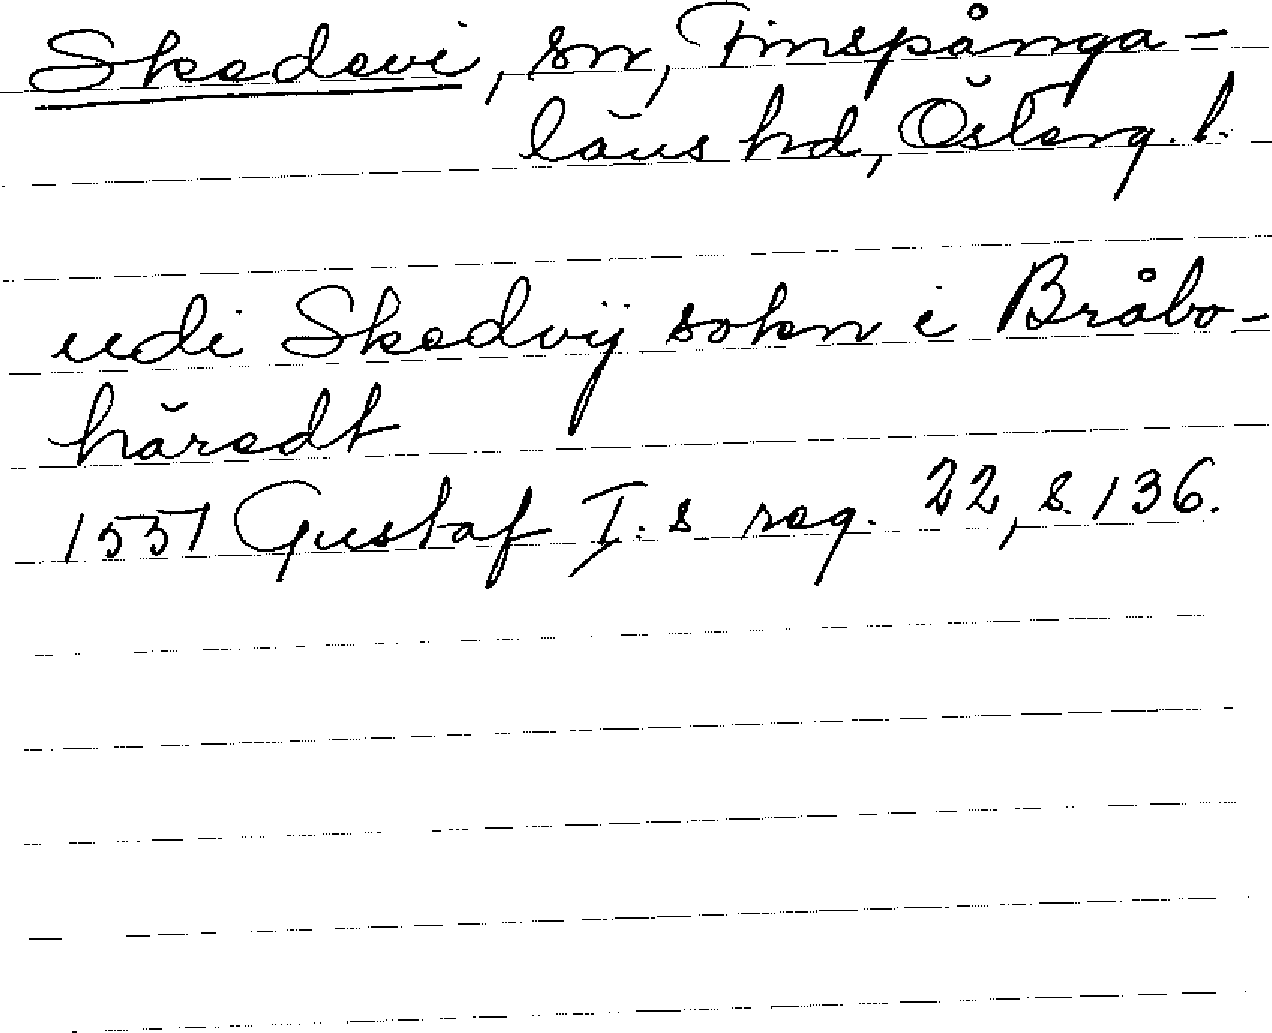 Skedevi, sn, Finspånga-
läns hd, Österg. l.
udi Skedvij sokn i Bråbo-
häredt
1551 Gustaf I:s reg. 22, s. 136.